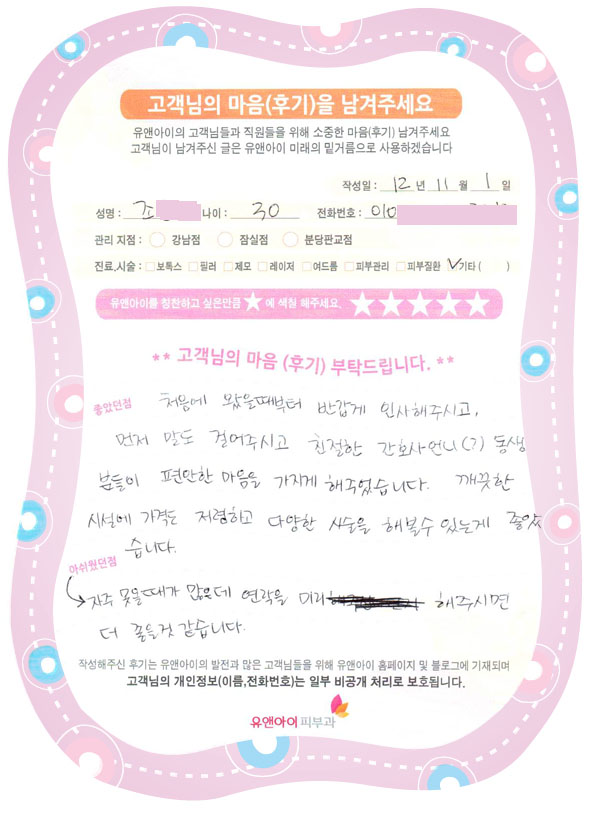 고객님의 마음(후기)을 남겨주세요
유앤아이의 고객님들과 직원들을 위해 소중한 마음(후기) 남겨주세요
고객님이 남겨주신 글은 유앤아이 미래의 밑거름으로 사용하겠습니다
작성일 : 12 년 11 월 1 일
성명 : 조 나이 : 30 전화번호 : 010
관리 지점 : 강남점 잠실점 분당판교점
진료,시술 : 보톡스 필러 제모 레이저 여드름 피부관리 피부질환 기타 ( )
유앤아이를 칭찬하고 싶은만큼 ★ 에 색칠 해주세요. ★★★★★
** 고객님의 마음 (후기) 부탁드립니다. **
좋았던점 처음에 왔을때부터 반갑게 인사해주시고,
먼저 말도 걸어주시고 친절한 간호사언니(?) 동생
분들이 편안한 마음을 가지게 해주었습니다. 깨끗한
시설에 가격도 저렴하고 다양한 시술을 해볼수 있는게 좋았
습니다.
아쉬웠던점
자주 못올때가 많은데 연락을 미리 해주시면
더 좋을것 같습니다.
작성해주신 후기는 유앤아이의 발전과 많은 고객님들을 위해 유앤아이 홈페이지 및 블로그에 기재되며
고객님의 개인정보(이름,전화번호)는 일부 비공개 처리로 보호됩니다.
유앤아이 피부과